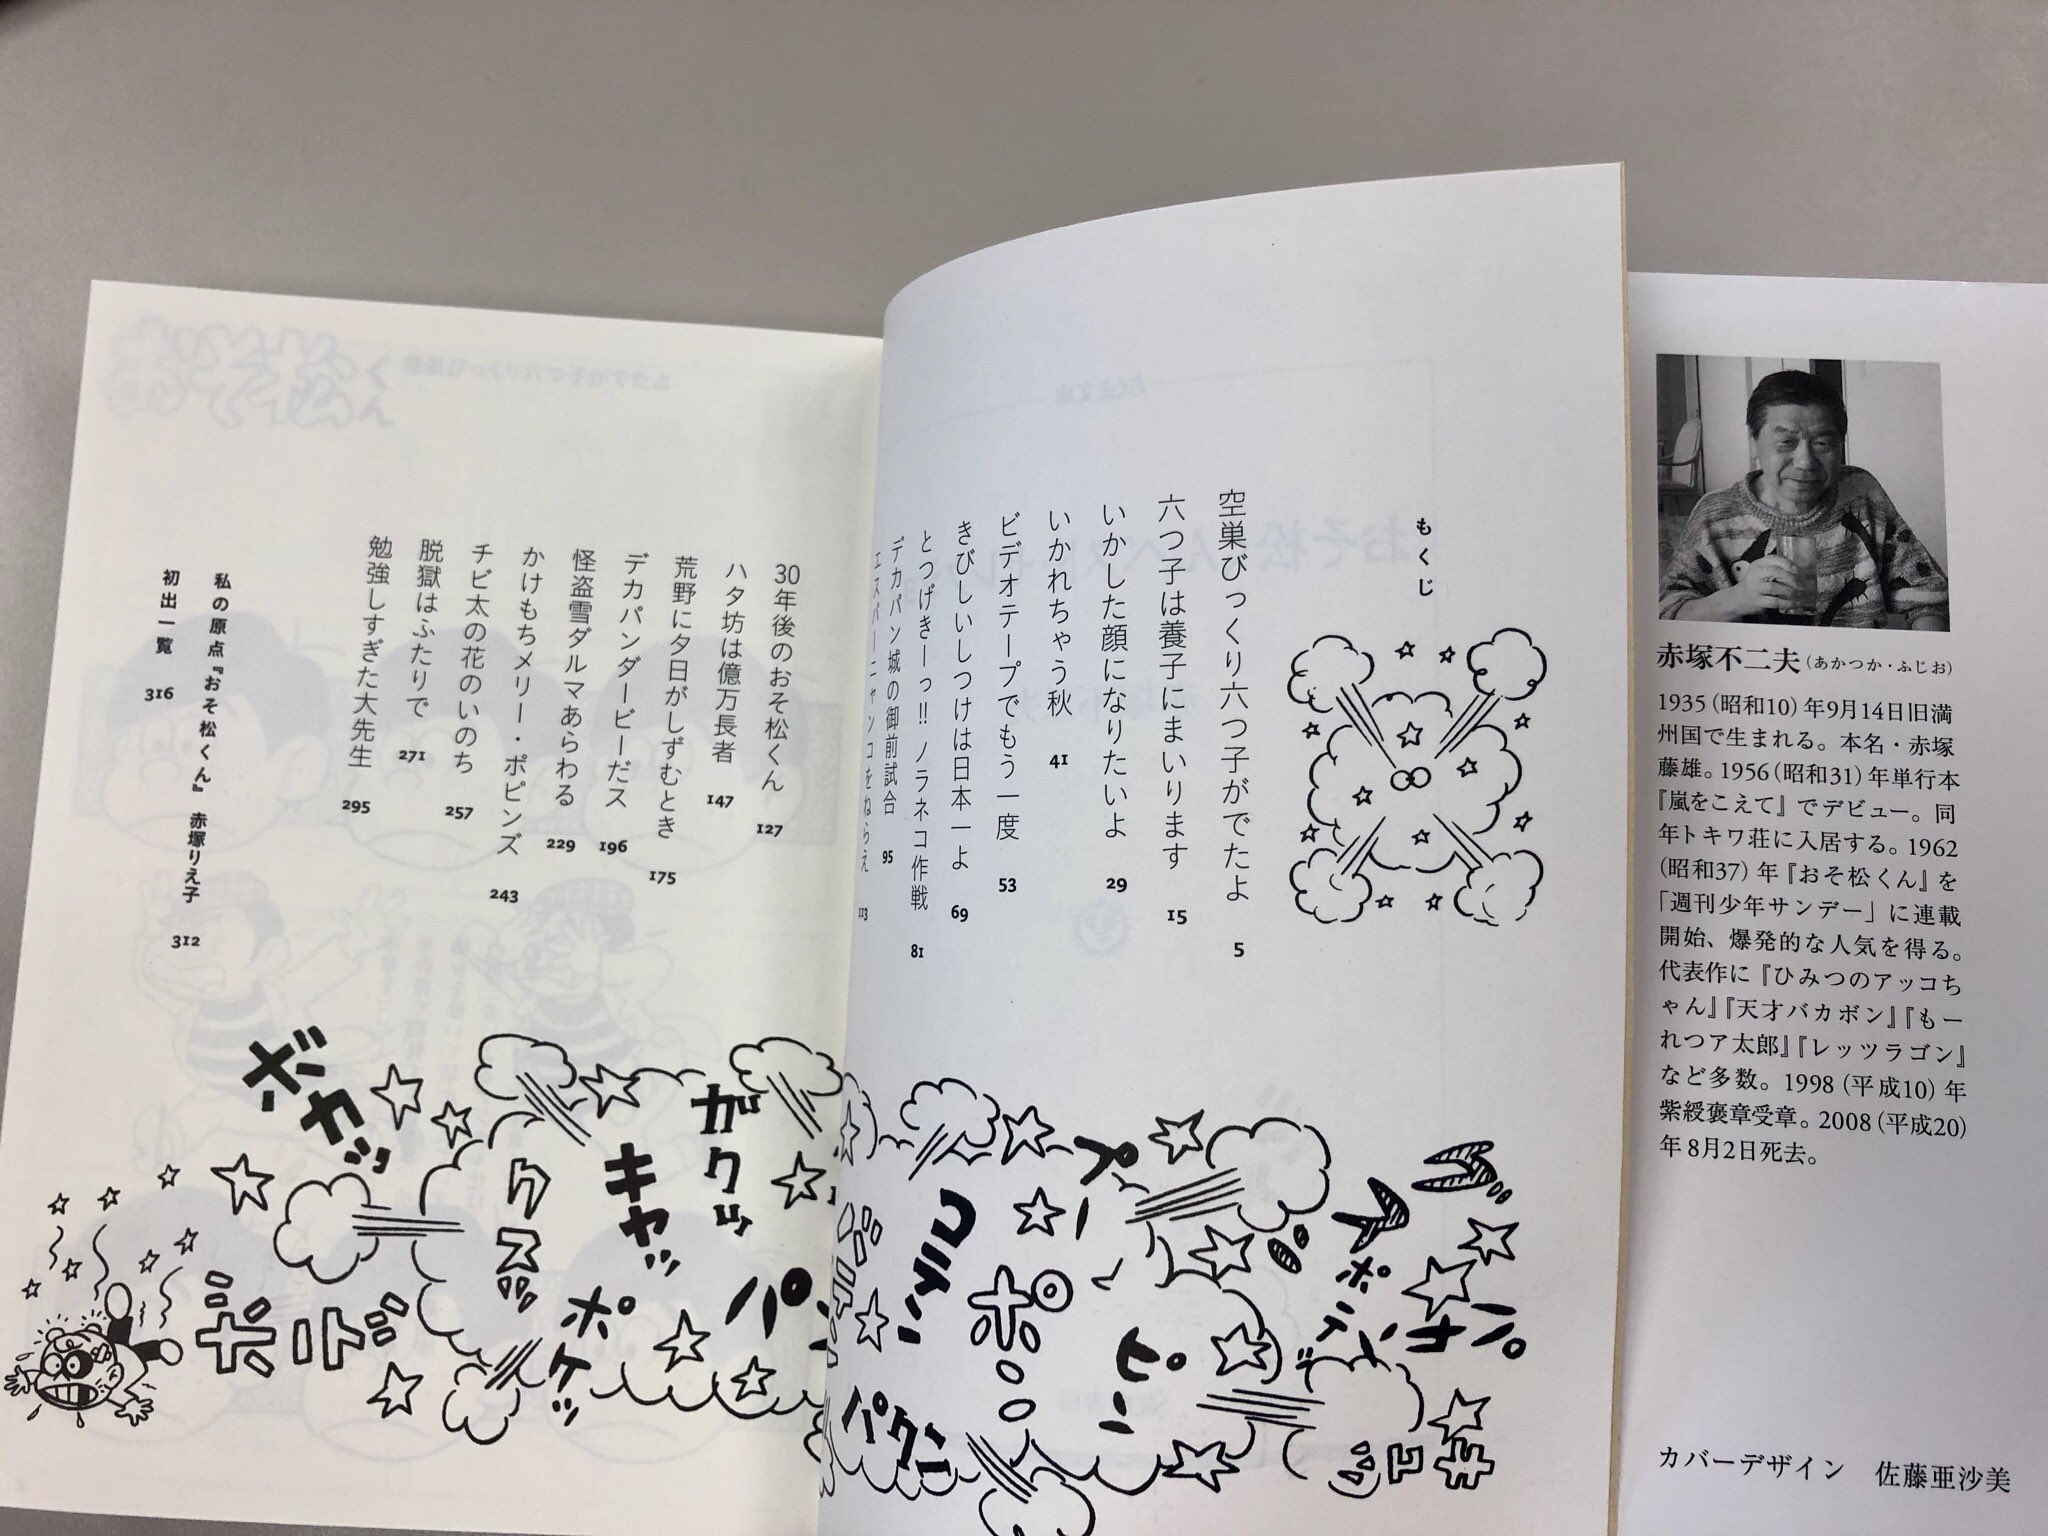 もくじ
空巣びっくり六つ子がでたよ 5
六つ子は養子にまいります 15
いかした顔になりたいよ 29
いかれちゃう秋 41
ビデオテープでもう一度 53
きびしいしつけは日本一よ 69
とつげきーっ!! ノラネコ作戦 81
デカパン城の御前試合 95
エスパーニャンコをねらえ 113
30年後のおそ松くん 127
ハタ坊は億万長者 147
荒野に夕日がしずむとき 175
デカパンダービーだス 196
怪盗雪ダルマあらわる 229
かけもちメリー・ポピンズ 243
チビ太の花のいのち 257
脱獄はふたりで 271
勉強しすぎた大先生 295
私の原点『おそ松くん』 赤塚りえ子 312
初出一覧 316
ボカッ
ガクッ
キャッ
クスッ
ポケッ
ドボ
ポ
ピン
パクン
赤塚不二夫(あかつか・ふじお)
1935(昭和10)年9月14日旧満
州国で生まれる。本名・赤塚
藤雄。1956(昭和31)年単行本
『嵐をこえて』でデビュー。同
年トキワ荘に入居する。1962
(昭和37)年『おそ松くん』を
「週刊少年サンデー」に連載
開始、爆発的な人気を得る。
代表作に『ひみつのアッコち
ゃん』『天才バカボン』『もー
れつア太郎』『レッツラゴン』
など多数。1998(平成10)年
紫綬褒章受章。2008(平成20)
年8月2日死去。
カバーデザイン 佐藤亜沙美